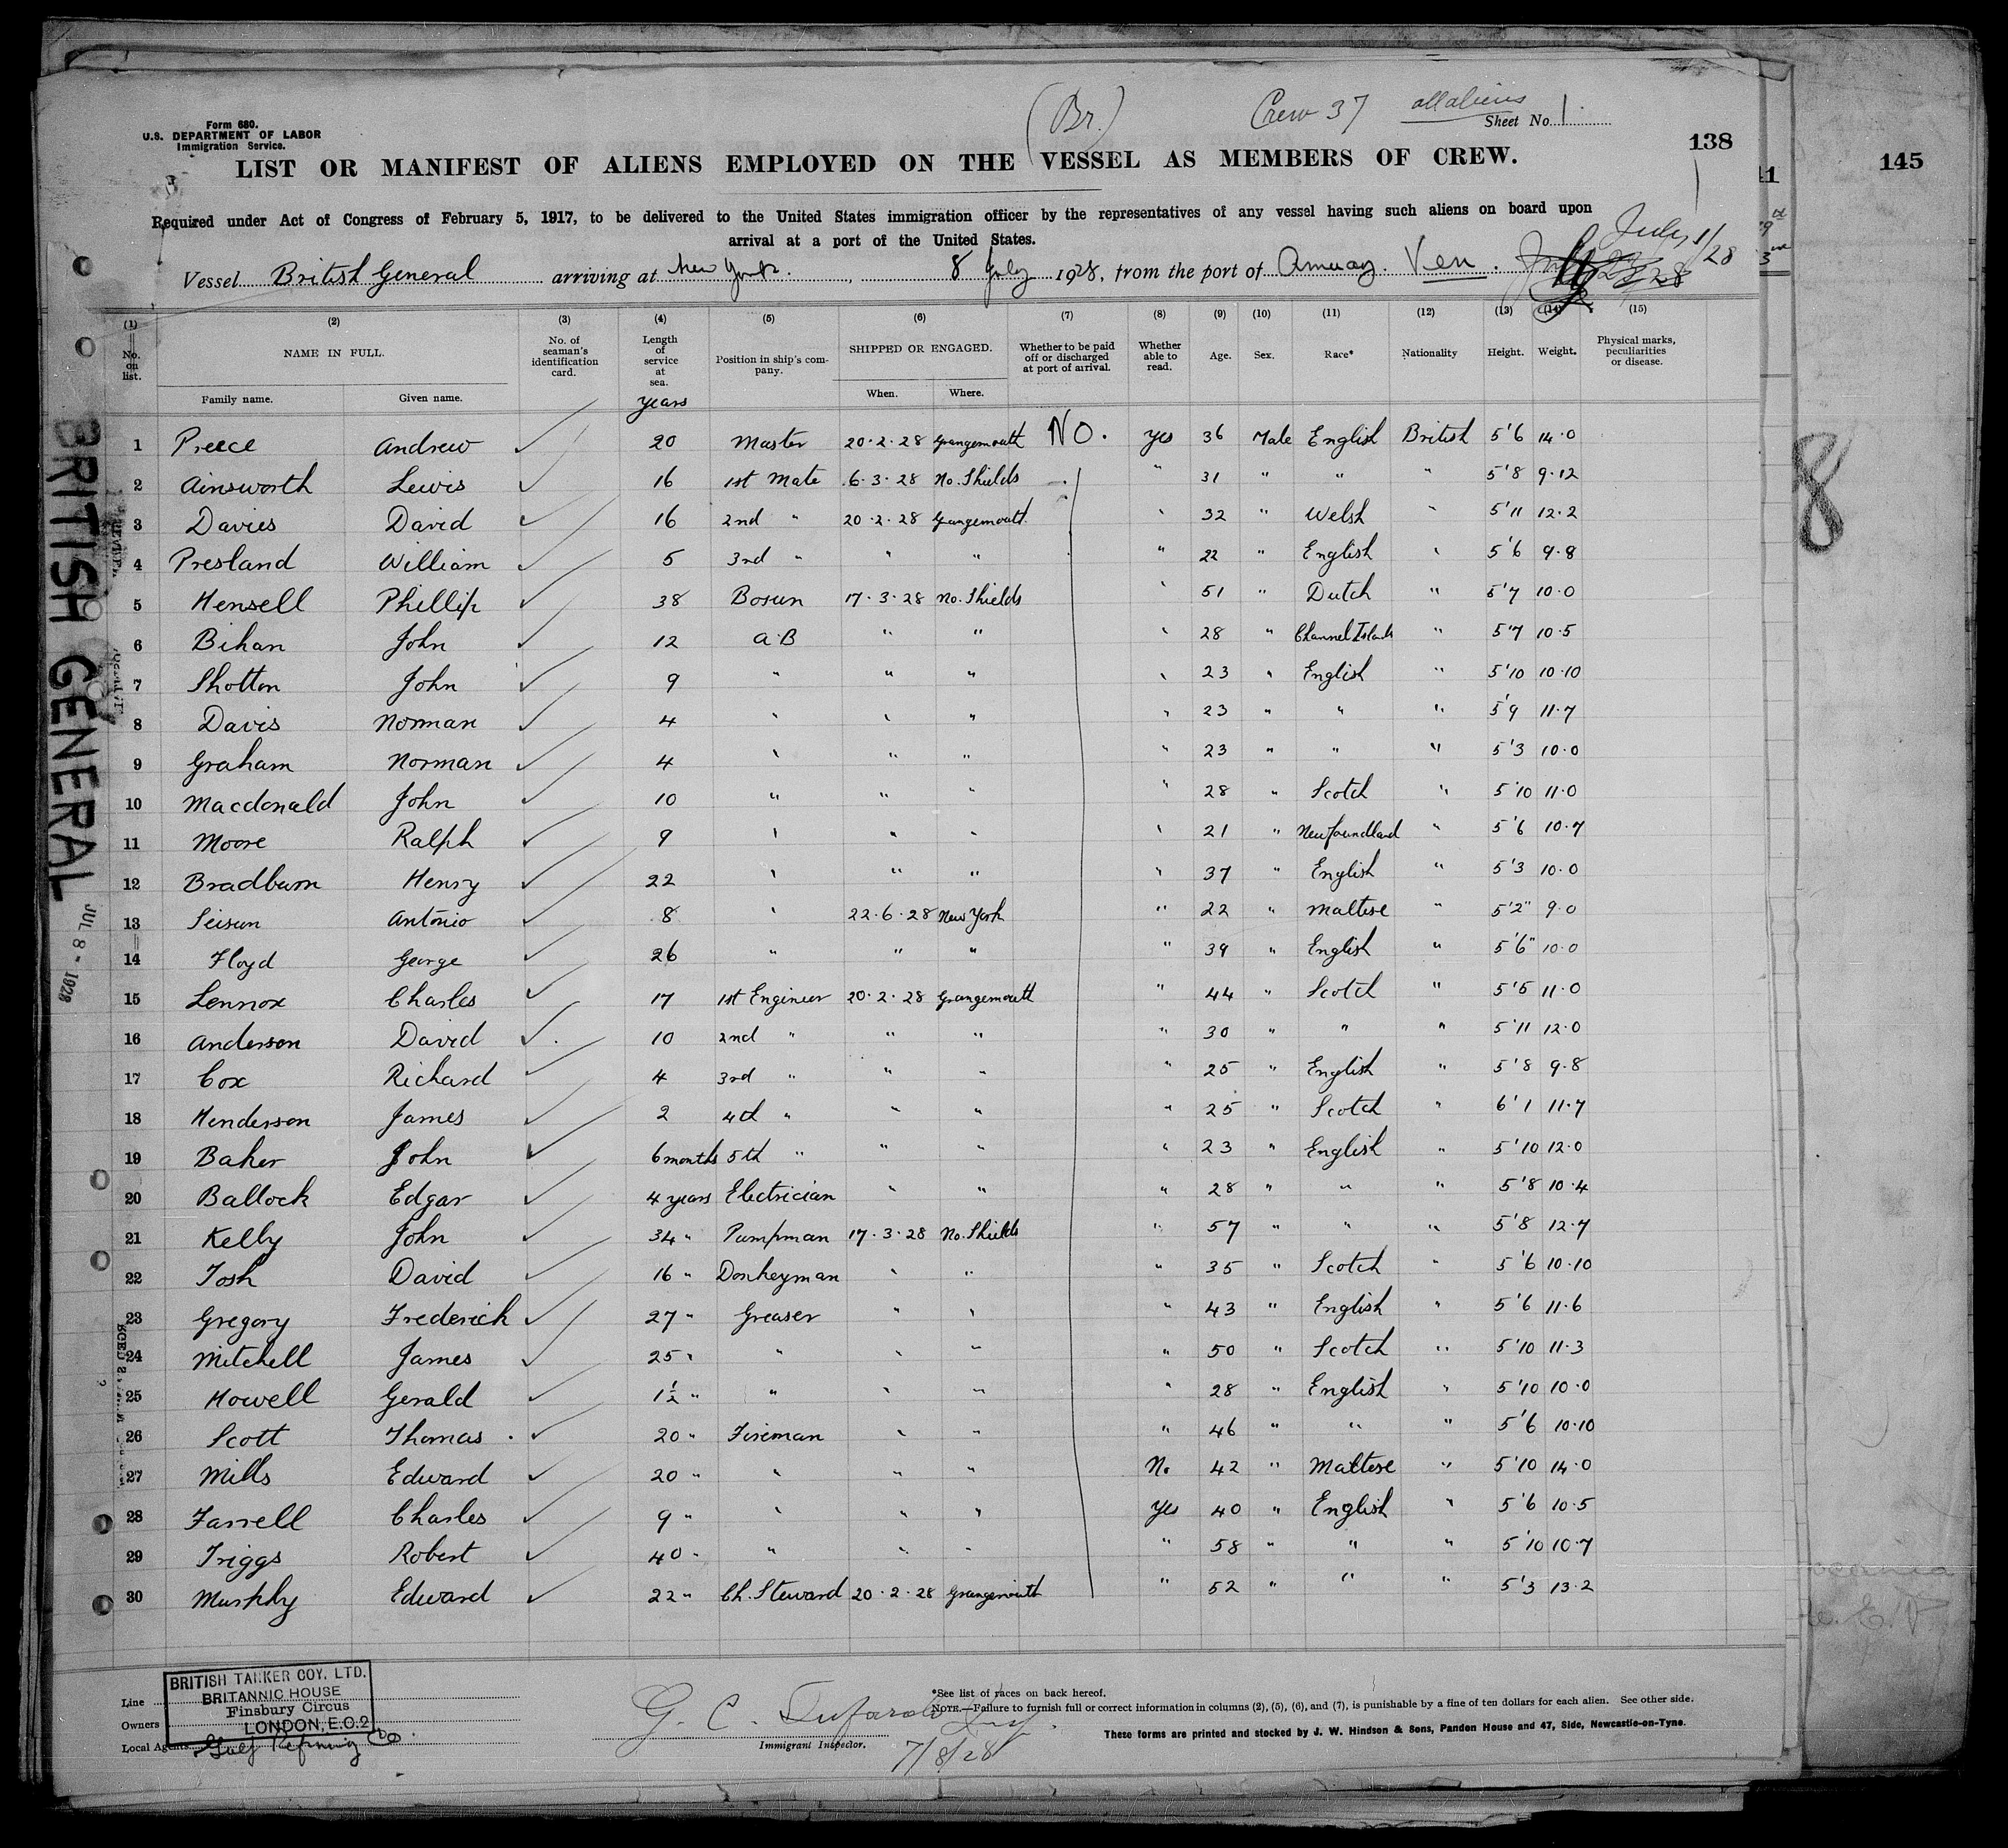 (Br.) Crew 37 all aliens
Form 680.
U.S. DEPARTMENT OF LABOR
Immigration Service.
Sheet No. 1
138
145
LIST OR MANIFEST OF ALIENS EMPLOYED ON THE VESSEL AS MEMBERS OF CREW.
Required under Act of Congress of February 5, 1917, to be delivered to the United States immigration officer by the representatives of any vessel having such aliens on board upon
arrival at a port of the United States.
July 1/28
Vessel British General arriving at New York. , 8 July 1928, from the port of Amuay. Ven.
(1) (2) (3) (4) (5) (6) (7) (8) (9) (10) (11) (12) (13) (14) (15)
No. on list. NAME IN FULL. Family name. Given name. No. of seaman's identification card. Length of service at sea. Position in ship's company. SHIPPED OR ENGAGED. When. Where. Whether to be paid off or discharged at port of arrival. Whether able to read. Age. Sex. Race* Nationality Height. Weight. Physical marks, peculiarities or disease.
years
1 Preece Andrew ✓ 20 Master 20.2.28 Grangemouth NO. yes 36 Male English British 5'6 14.0
2 Ainsworth Lewis ✓ 16 1st Mate 6.3.28 No. Shields " 31 " " " 5'8 9.12
3 Davies David ✓ 16 2nd " 20.2.28 Grangemouth " 32 " Welsh " 5'11 12.2
4 Presland William ✓ 5 3rd " " " " 22 " English " 5'6 9.8
5 Hensell Phillip ✓ 38 Bosun 17.3.28 No. Shields " 51 " Dutch " 5'7 10.0
6 Bihan John ✓ 12 A.B " " " 28 " Channel Islands " 5'7 10.5
7 Shotton John ✓ 9 " " " " 23 " English " 5'10 10.10
8 Davis Norman ✓ 4 " " " " 23 " " " 5'9 11.7
9 Graham Norman ✓ 4 " " " " 23 " " " 5'3 10.0
10 Macdonald John ✓ 10 " " " " 28 " Scotch " 5'10 11.0
11 Moore Ralph ✓ 9 " " " " 21 " Newfoundland " 5'6 10.7
12 Bradburn Henry ✓ 22 " " " " 37 " English " 5'3 10.0
13 Seisun Antonio ✓ 8 " 22.6.28 New York " 22 " Maltese " 5'2" 9.0
14 Floyd George ✓ 26 " " " " 39 " English " 5'6" 10.0
15 Lennox Charles ✓ 17 1st Engineer 20.2.28 Grangemouth " 44 " Scotch " 5'5 11.0
16 Anderson David ✓ 10 2nd " " " " 30 " " " 5'11 12.0
17 Cox Richard ✓ 4 3rd " " " " 25 " English " 5'8 9.8
18 Henderson James ✓ 2 4th " " " " 25 " Scotch " 6'1 11.7
19 Baker John ✓ 6 months 5th " " " " 23 " English " 5'10 12.0
20 Ballock Edgar ✓ 4 years Electrician " " " 28 " " " 5'8 10.4
21 Kelly John ✓ 34 " Pumpman 17.3.28 No. Shields " 57 " " " 5'8 12.7
22 Tosh David ✓ 16 " Donkeyman " " " 35 " Scotch " 5'6 10.10
23 Gregory Frederick ✓ 27 " Greaser " " " 43 " English " 5'6 11.6
24 Mitchell James ✓ 25 " " " " " 50 " Scotch " 5'10 11.3
25 Howell Gerald ✓ 1½ " " " " " 28 " English " 5'10 10.0
26 Scott Thomas ✓ 20 " Fireman " " " 46 " " " 5'6 10.10
27 Mills Edward ✓ 20 " " " " No 42 " Maltese " 5'10 14.0
28 Farrell Charles ✓ 9 " " " " yes 40 " English " 5'6 10.5
29 Triggs Robert ✓ 40 " " " " " 58 " " " 5'10 10.7
30 Murphy Edward ✓ 22 " Ch. Steward 20.2.28 Grangemouth " 52 " " " 5'3 13.2
BRITISH GENERAL
JUL 8 - 1928
8
Line
Owners
Local Agents Gulf Refining Co.
BRITISH TANKER COY. LTD.
BRITANNIC HOUSE
Finsbury Circus
LONDON, E.C.2.
G. C.
Immigrant Inspector.
7/8/28
*See list of races on back hereof.
NOTE.—Failure to furnish full or correct information in columns (2), (5), (6), and (7), is punishable by a fine of ten dollars for each alien. See other side.
These forms are printed and stocked by J. W. Hindson & Sons, Pandon House and 47, Side, Newcastle-on-Tyne.